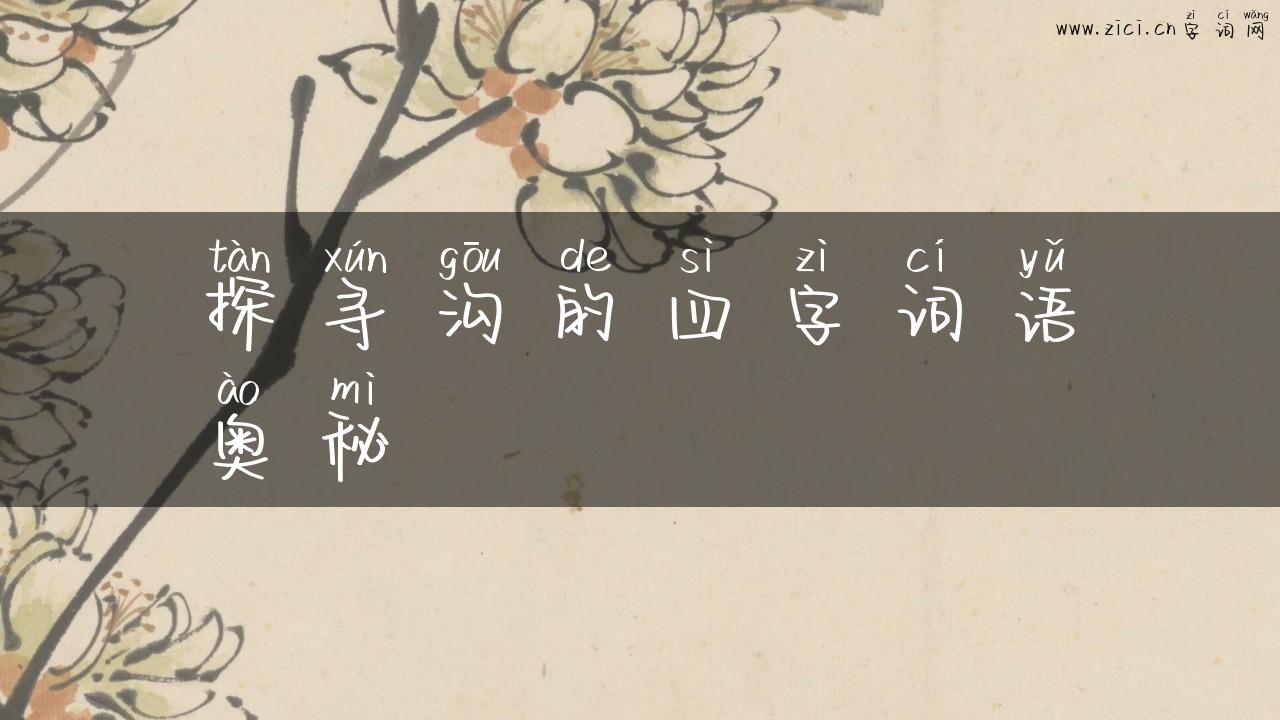 zì cí wǎng
www.zici.cn 字词网
tàn xún gōu de sì zì cí yǔ
探寻沟的四字词语
ào mì
奥秘